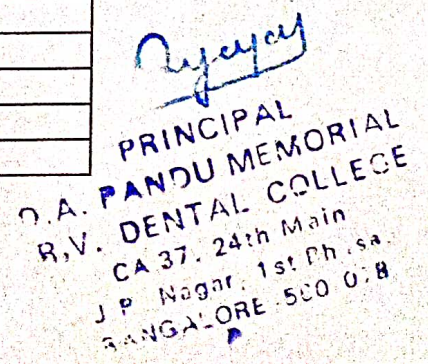 PRINCIPAL
D.A. PANDU MEMORIAL
R.V. DENTAL COLLEGE
CA 37, 24th Main
J P Nagar, 1st Phase,
BANGALORE-560 078